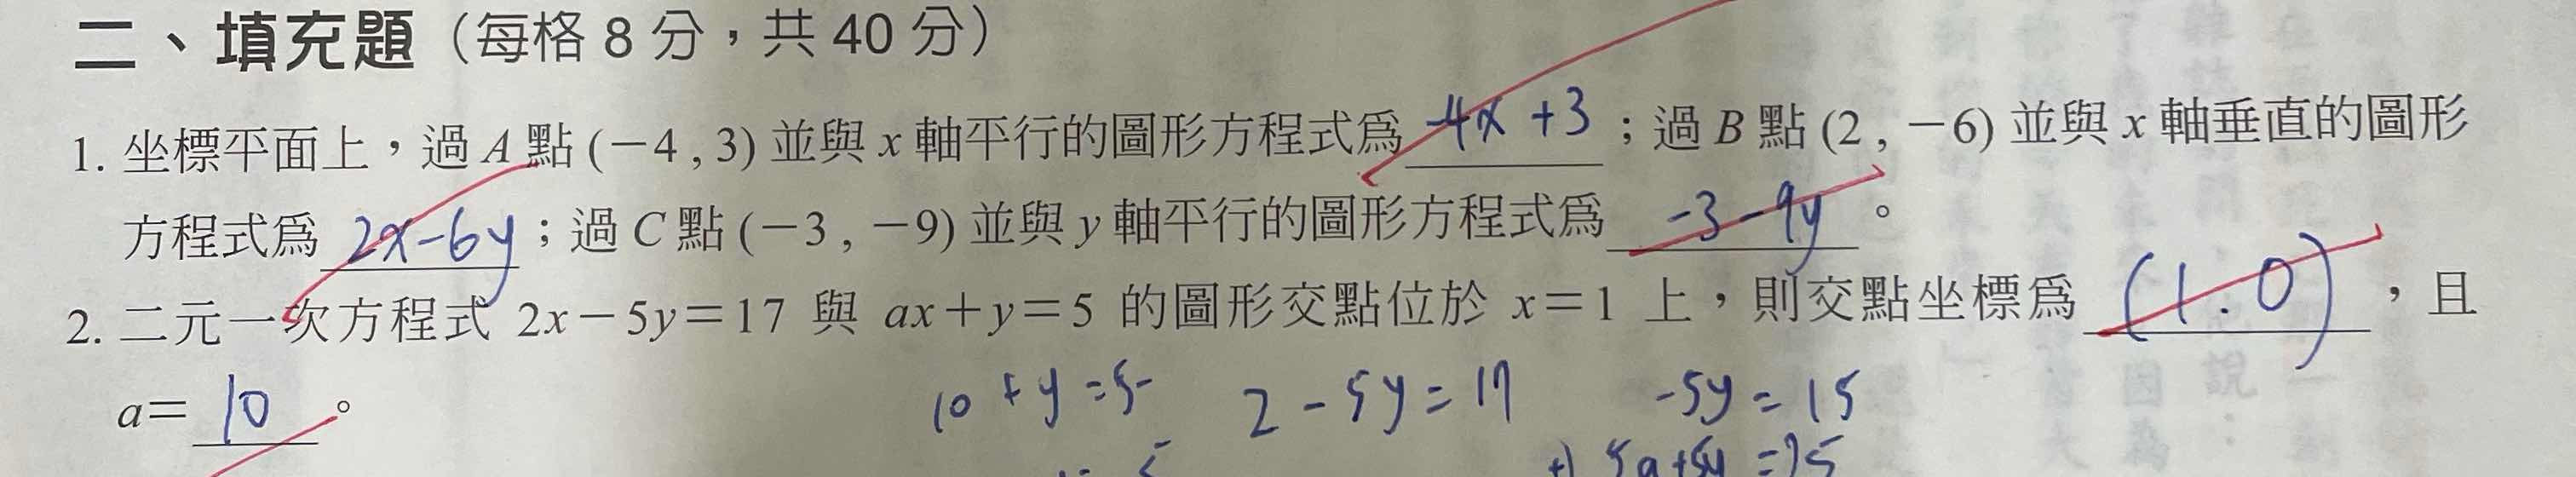 二、填充題（每格 8 分，共 40 分）
1. 坐標平面上，過 A 點 (－4 , 3) 並與 x 軸平行的圖形方程式爲 -4x +3 ；過 B 點 (2 , －6) 並與 x 軸垂直的圖形
方程式爲 2x-6y ；過 C 點 (－3 , －9) 並與 y 軸平行的圖形方程式爲 -3-9y 。
2. 二元一次方程式 2x－5y＝17 與 ax＋y＝5 的圖形交點位於 x＝1 上，則交點坐標爲 (1.0) ，且
a＝ 10 。
10 + y = 5 2 - 5y = 17 -5y = 15
+) 5a+5y =25